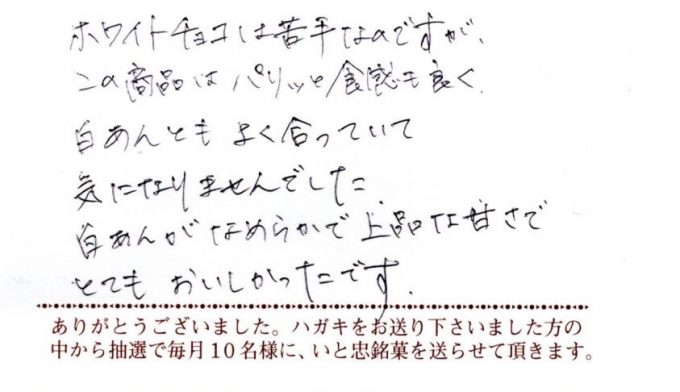 ホワイトチョコは苦手なのですが、
この商品はパリッと食感も良く、
白あんともよく合っていて
気になりませんでした。
白あんがなめらかで上品な甘さで
とてもおいしかったです。
ありがとうございました。ハガキをお送り下さいました方の
中から抽選で毎月10名様に、いと忠銘菓を送らせて頂きます。